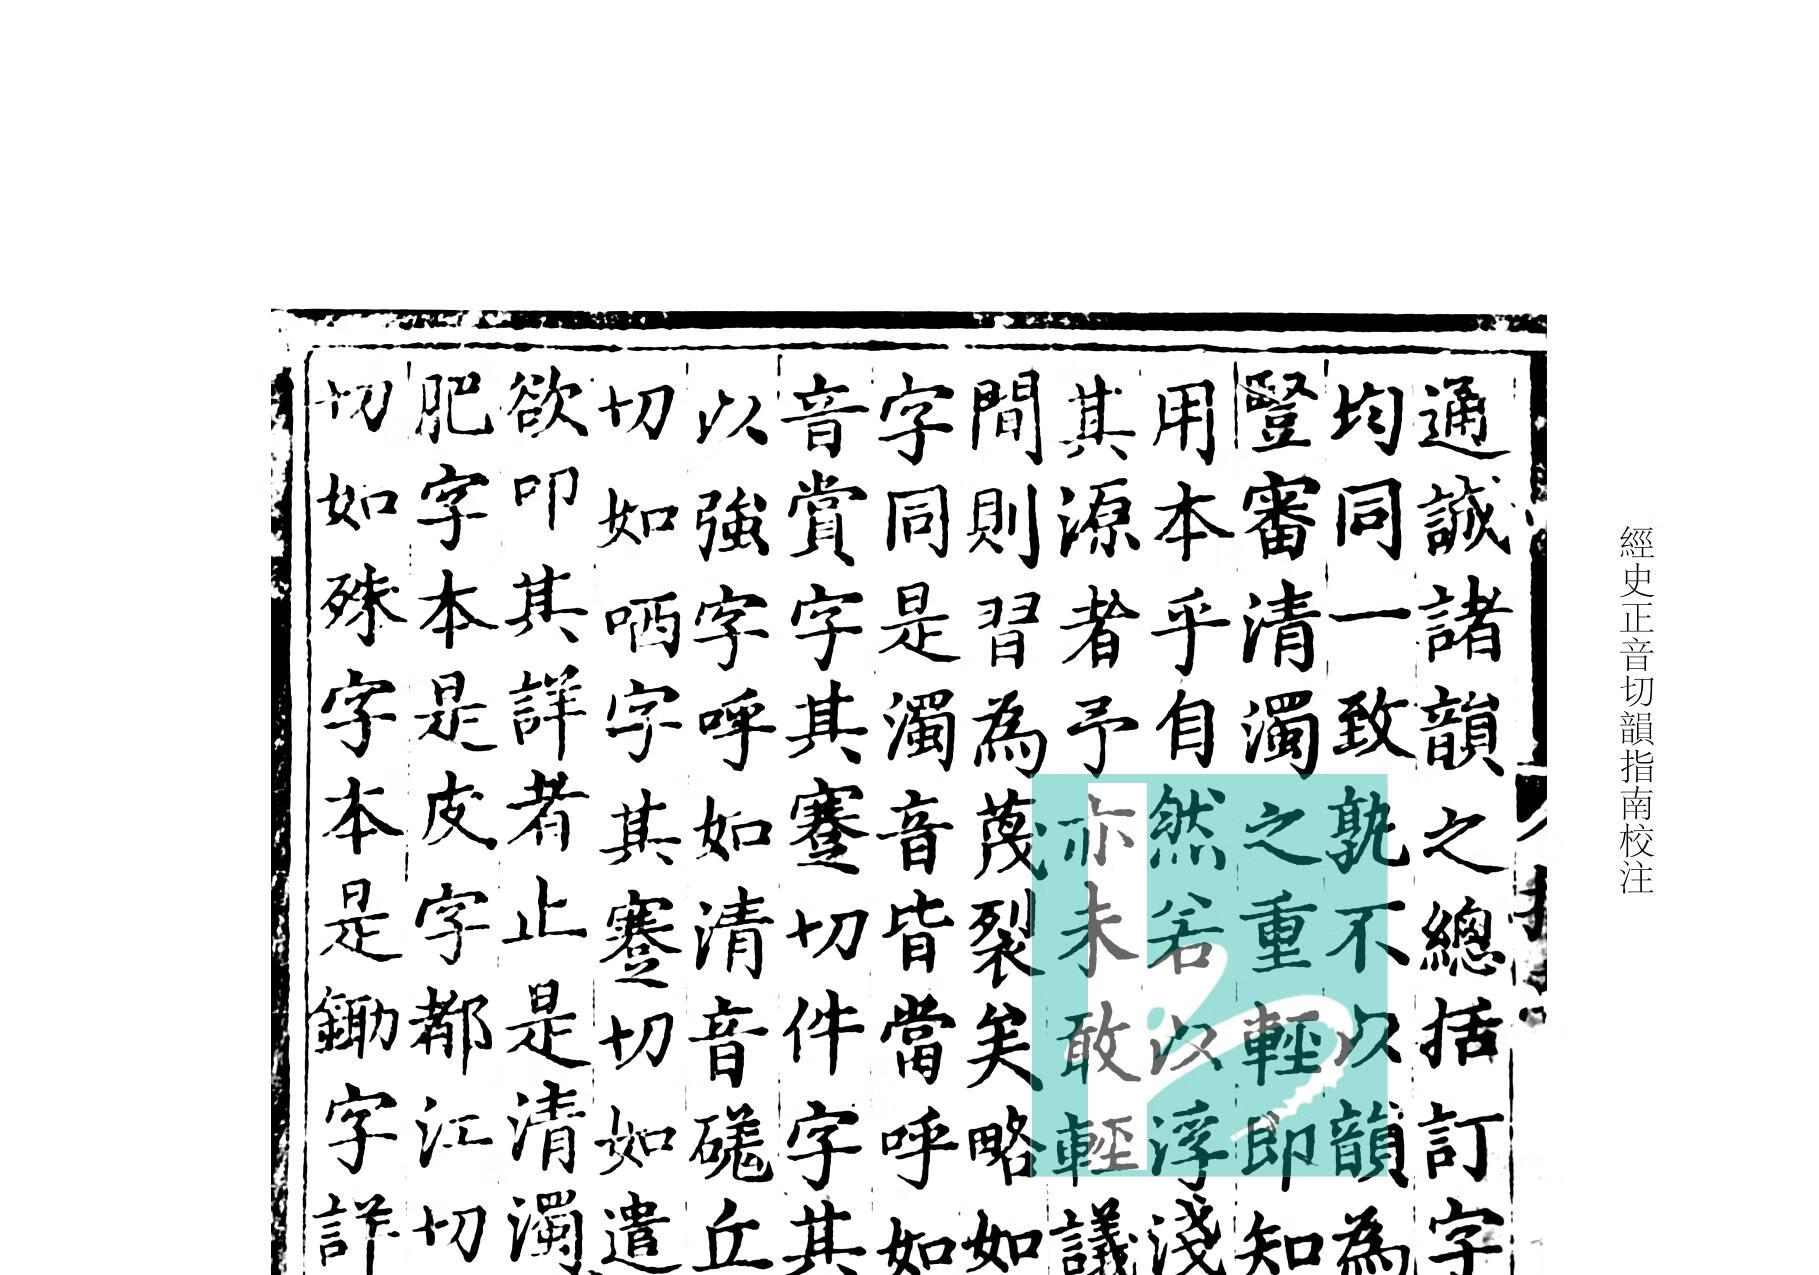 經史正音切韻指南校注
通誠諸韻之總括訂字
均同一致孰不以韻為
豎審清濁之重輕即知
用本乎自然若以浮淺
其源者予亦未敢輕議
間則習為蔑裂矣略如
字同是濁音皆當呼如
音賞字其蹇切件字其
以強字呼如清音磋丘
切如哂字其蹇切如遣
欲叩其詳者止是清濁
肥字本是皮字都江切
切如殊字本是鋤字詳